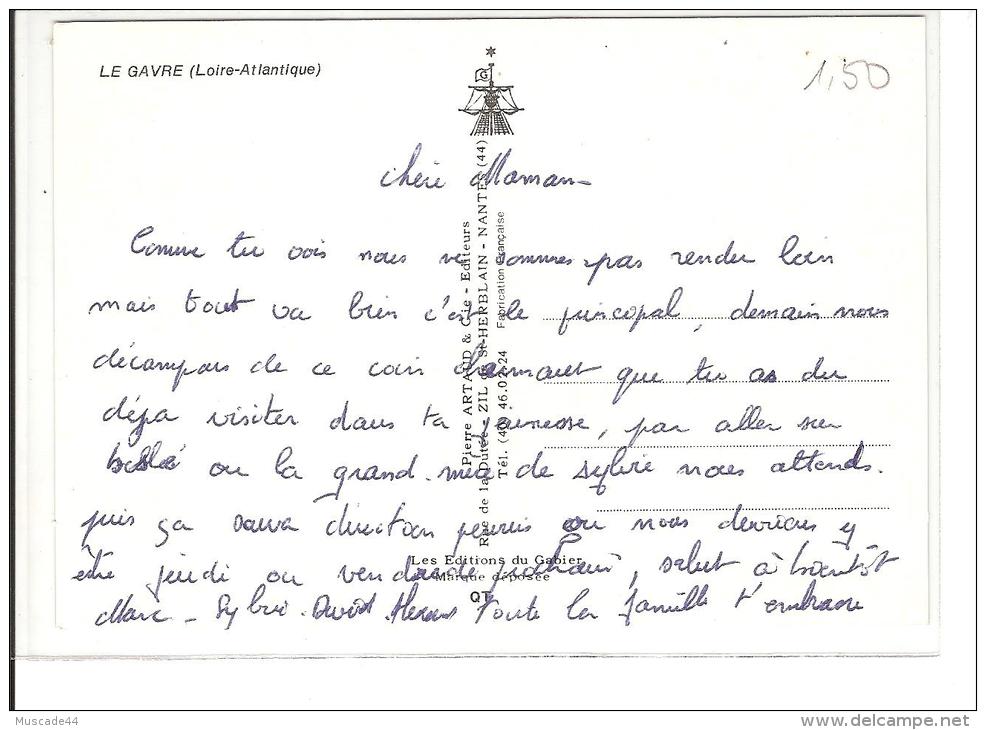 LE GAVRE (Loire-Atlantique)
1,50
G
chère Maman
Comme tu vois nous ne sommes pas rendu loin
mais tout va bien c'est le principal, demain nous
décampons de ce coin charmant que tu as du
déja visiter dans ta jeunesse, par aller sur
ou la grand-mère de sylvie nous attends.
puis ça sauva direction ou nous devrions y
être jeudi ou vendredi prochain, salut à bientôt
Marc - Sylvi. David. toute la famille t'embrasse
Pierre ARTAUD & Cie - Editeurs
Rue de la Dutée - ZIL de St-HERBLAIN - NANTES (44)
Tél. (40) 46.02.24 Fabrication Française
Les Editions du Gabier
Marque déposée
QT
Muscade44
www.delcampe.net